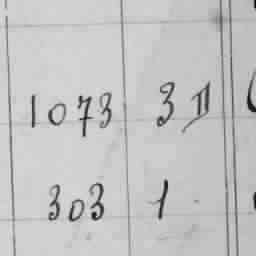 1073 3 II
303 1